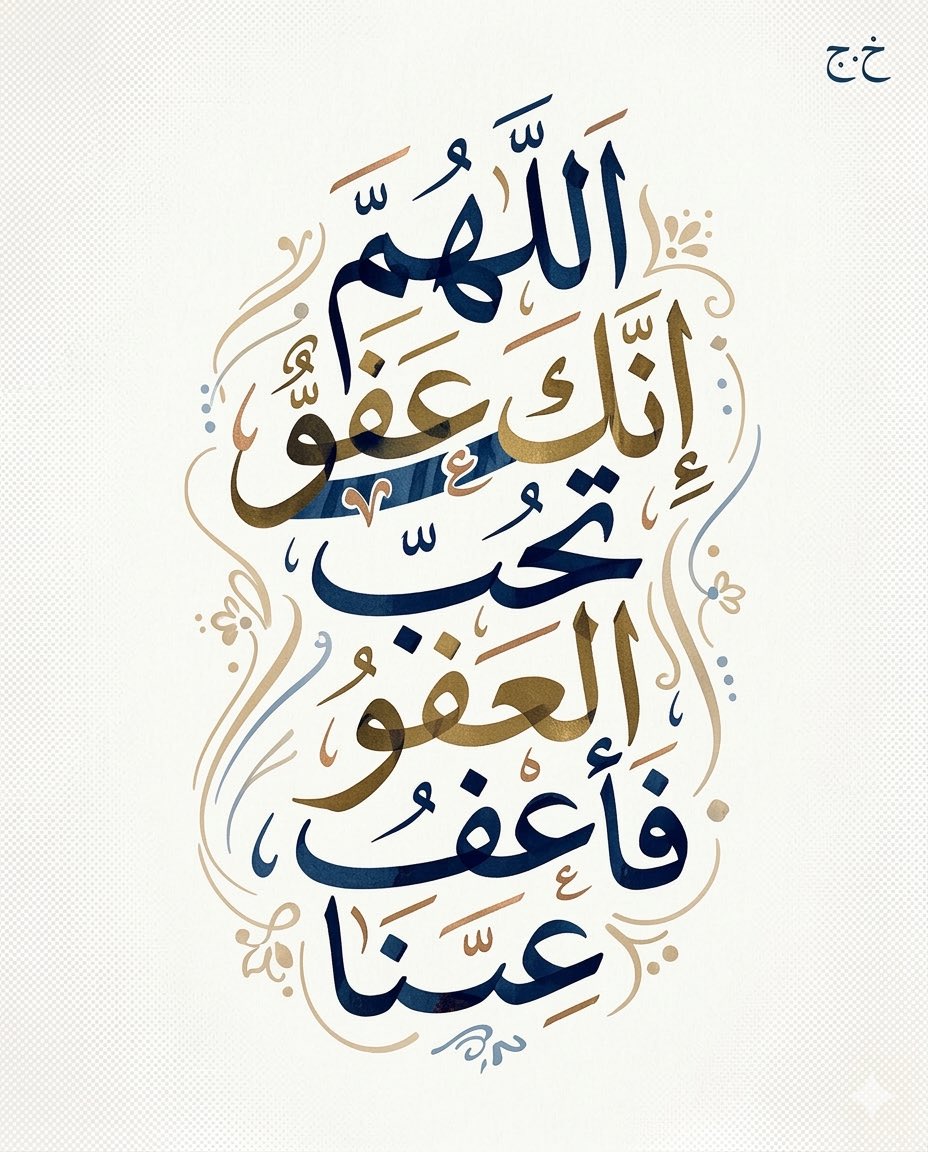 خ.ج
اللَّهُمَّ
إِنَّكَ عَفُوٌّ
تحُبّ
العَفوُ
فَأعفُ
عِنَّنَا